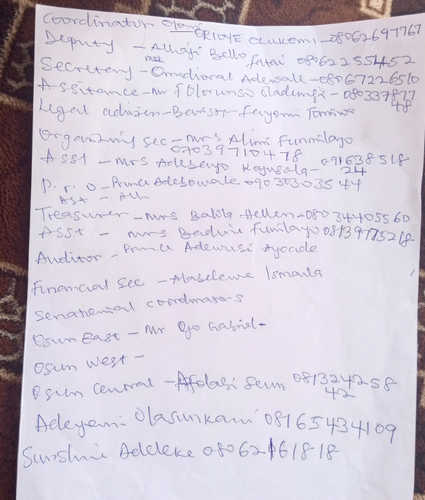 Coordinator ORIOYE OLUKEMI - 08062697767
Deputy - Alhaji Bello fatai 08062255452
Secretery - Omodioral Adewale - 08067226510
Assitance - Mr Folorunso Oladimeji - 080337877
48
Legal adviser - Barister
Organizing Sec - Mrs Alimi Funmilayo
07039710478
Asst - Mrs Adesenyo - 091638518
24
P. r. o - Prince Adebowale - 09030303544
Asst - Alh
Treasurer - Mrs Hellen - 08034405560
Asst - Mrs Funmilayo 08139775218
Auditor - Prince Adewusi Ayoade
Financial Sec - Ismaila
Senatorial coordinators
Osun East - Mr Ojo Gabriel -
Osun West -
Osun Central - Afolabi Seun 081324258
42
Adeyemi Olasunkanmi 08165434109
Sunshine Adeleke 08062161818